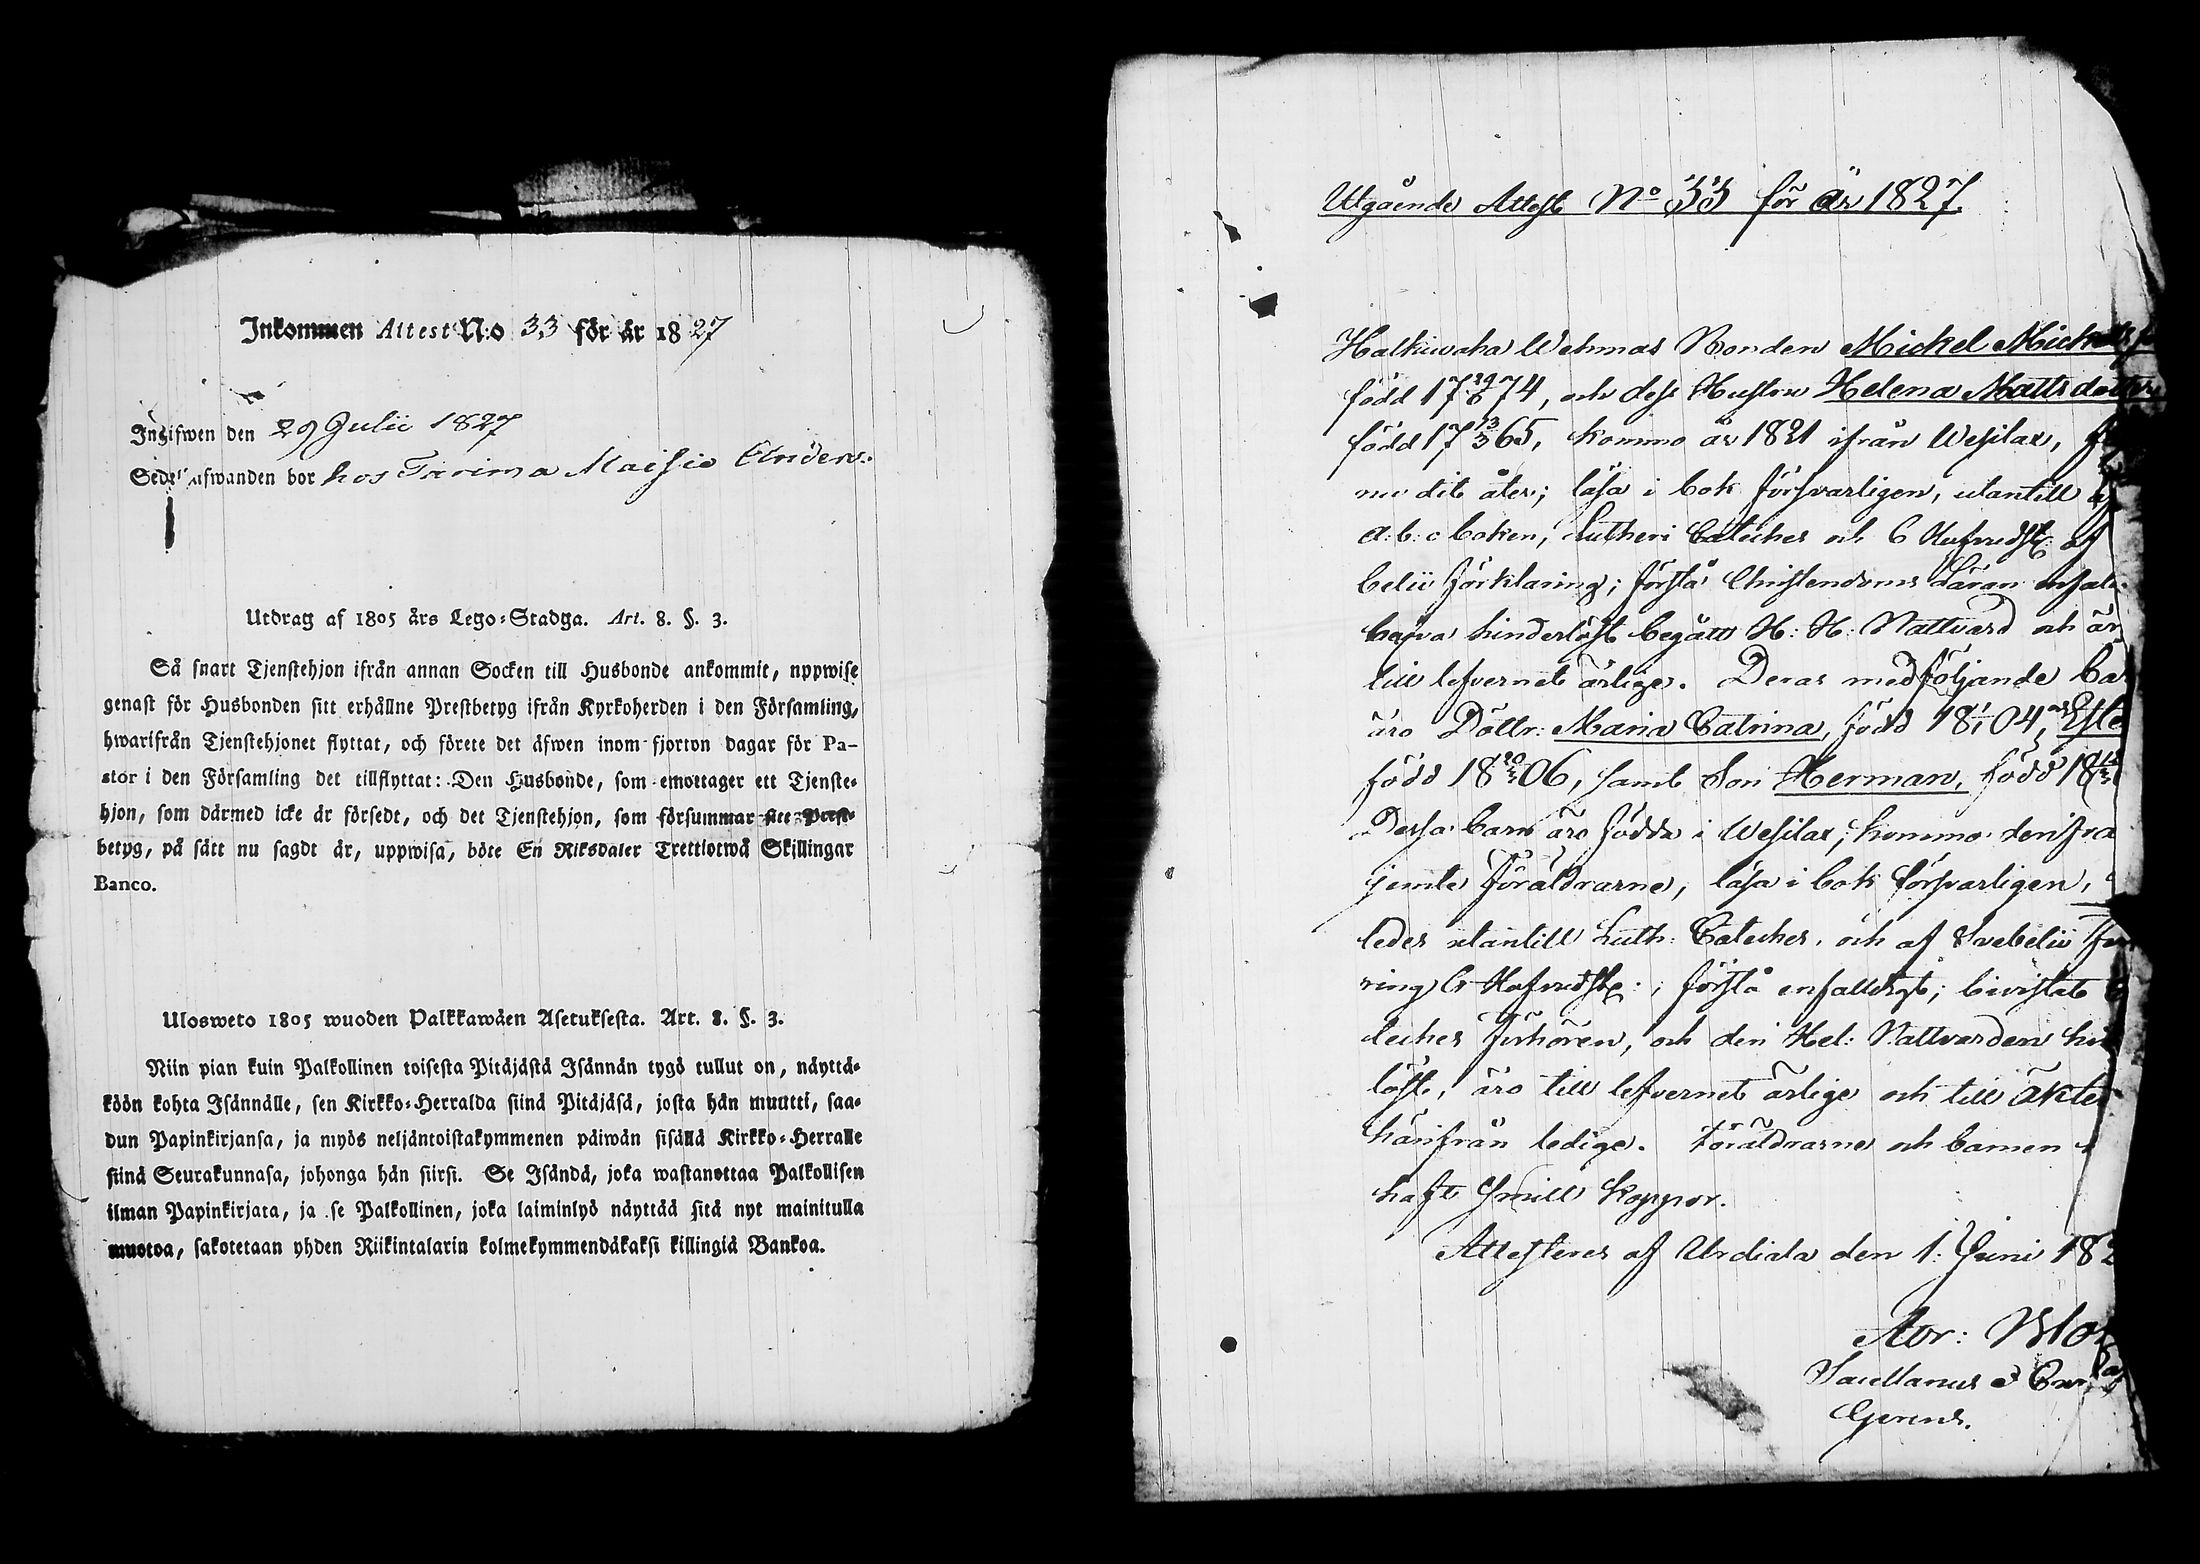 Inkommen Attest N:o 33 för år 1827
Ingifwen den 29 Julii 1827
hos Tarima Maisio Anders:
Utdrag af 1805 års Lego-Stadga. Art. 8. §. 3.
Så snart Tjenstehjon ifrån annan Socken till Husbonde ankommit, uppwise
genast för Husbonden sitt erhållne Prestbetyg ifrån Kyrkoherden i den Församling,
hwarifrån Tjenstehjonet flyttat, och förete det äfwen inom fjorton dagar för Pa-
stor i den Församling det tillflyttat: Den Husbonde, som emottager ett Tjenste-
hjon, som därmed icke är försedt, och det Tjenstehjon, som försummar sitt Prest-
betyg, på sätt nu sagdt är, uppwisa, böte En Riksdaler Trettiotwå Skillingar
Banco.
Ulosweto 1805 wuoden Palkkawäen Asetuksesta. Art. 8. §. 3.
Niin pian kuin Palkollinen toisesta Pitäjästä Isännän tygö tullut on, näyttä-
köön kohta Isännälle, sen Kirkko-Herralda siinä Pitäjäsä, josta hän muutti, saa-
dun Papinkirjansa, ja myös neljäntoistakymmenen päiwän sisällä Kirkko-Herralle
siinä Seurakunnasa, johonga hän siirsi. Se Isändä, joka wastanottaa Palkollisen
ilman Papinkirjata, ja se Palkollinen, joka laiminlyö näyttää sitä nyt mainitulla
muotoa, sakotetaan yhden Riikintalarin kolmekymmendäkaksi killingiä Bankoa.
Utgående Attest No 33 för år 1827.
Halkiwaha Wehmas Bonden Mickel Mickels
född 17 29/6 74, och dess Hustru Helena Mattsdotter
född 17 13/3 65, kommo år 1821 ifrån Wesilax,
nu dit åter; läsa i bok försvarligen, utantill
a:b:c boken, Lutheri Cateches och 6 Hufvudst: af
belii förklaring; förstå Christendoms Läran
hafva hinderlöst begått H: H: Nattvard och är
till lefvernet ärlige. Deras medföljande
äro Döttr: Maria Catrina, född 18 1/1 04,
född 18 20/2 06, samt Son Herman, född 18
Dessa barn äro födda i Wesilax, kommo
jemte föräldrarne, läsa i bok försvarligen,
ledes utantill Luth: Cateches, och af Svebelii
ring 6 Hufvudst:, förstå enfalldigt; bivistat
leches förhören, och den Hel: Nattvarden
löst, äro till lefvernet ärlige och till äkten
härifrån ledige. Föräldrarne och barnen
haft Smitt koppor.
Attesteras af Urdiala den 1. Juni 182
Abr:
Sacellanus
Gerens.